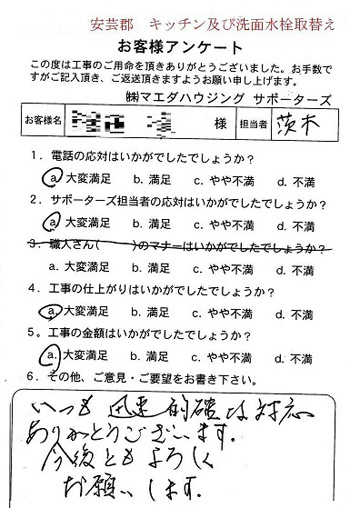 安芸郡　キッチン及び洗面水栓取替え
お客様アンケート
この度は工事のご用命を頂きありがとうございました。お手数で
すがご記入頂き、ご返送頂きますようお願い申し上げます。
㈱マエダハウジング サポーターズ
お客様名 様 担当者 茨木
1．電話の応対はいかがでしたでしょうか？
a. 大変満足 b. 満足 c. やや不満 d. 不満
2．サポーターズ担当者の応対はいかがでしたでしょうか？
a. 大変満足 b. 満足 c. やや不満 d. 不満
3．職人さん(　　)のマナーはいかがでしたでしょうか？
a. 大変満足 b. 満足 c. やや不満 d. 不満
4．工事の仕上がりはいかがでしたでしょうか？
a. 大変満足 b. 満足 c. やや不満 d. 不満
5．工事の金額はいかがでしたでしょうか？
a. 大変満足 b. 満足 c. やや不満 d. 不満
6．その他、ご意見・ご要望をお書き下さい。
いつも 迅速 的確な対応
ありがとうございます。
今後ともよろしく
お願いします。